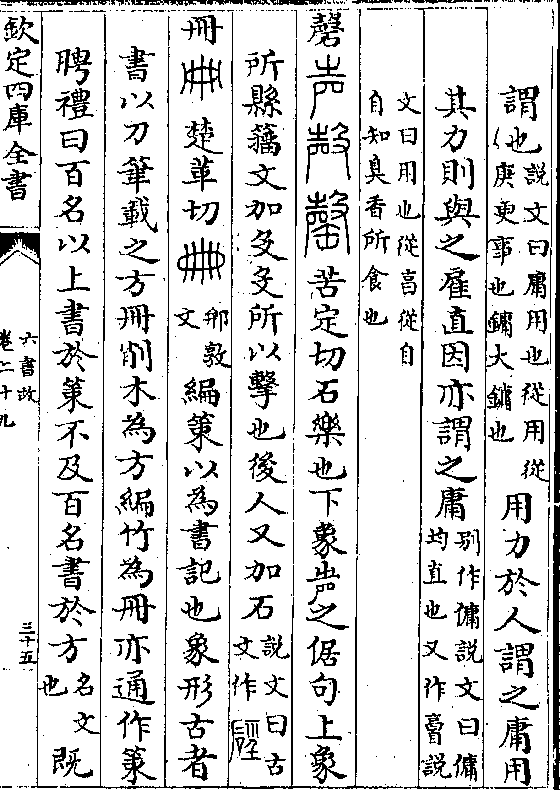 謂也說文曰庸用也從用從庚更事也鏞大鐘也用力於人謂之庸用
其力則與之雇直因亦謂之庸别作傭說文曰傭均直也又作𠅬說
文曰用也從㐭從自自知臭香所食也
磬苦定切石樂也下象之倨句上象
所縣籒文加殳殳所以擊也後人又加石說文曰古文作
冊楚革切邢敦文編策以為書記也象形古者
書以刀筆載之方冊削木為方編竹為冊亦通作策
聘禮曰百名以上書於策不及百名書於方名文也既
欽定四庫全書
六書故
卷二十九
三十五